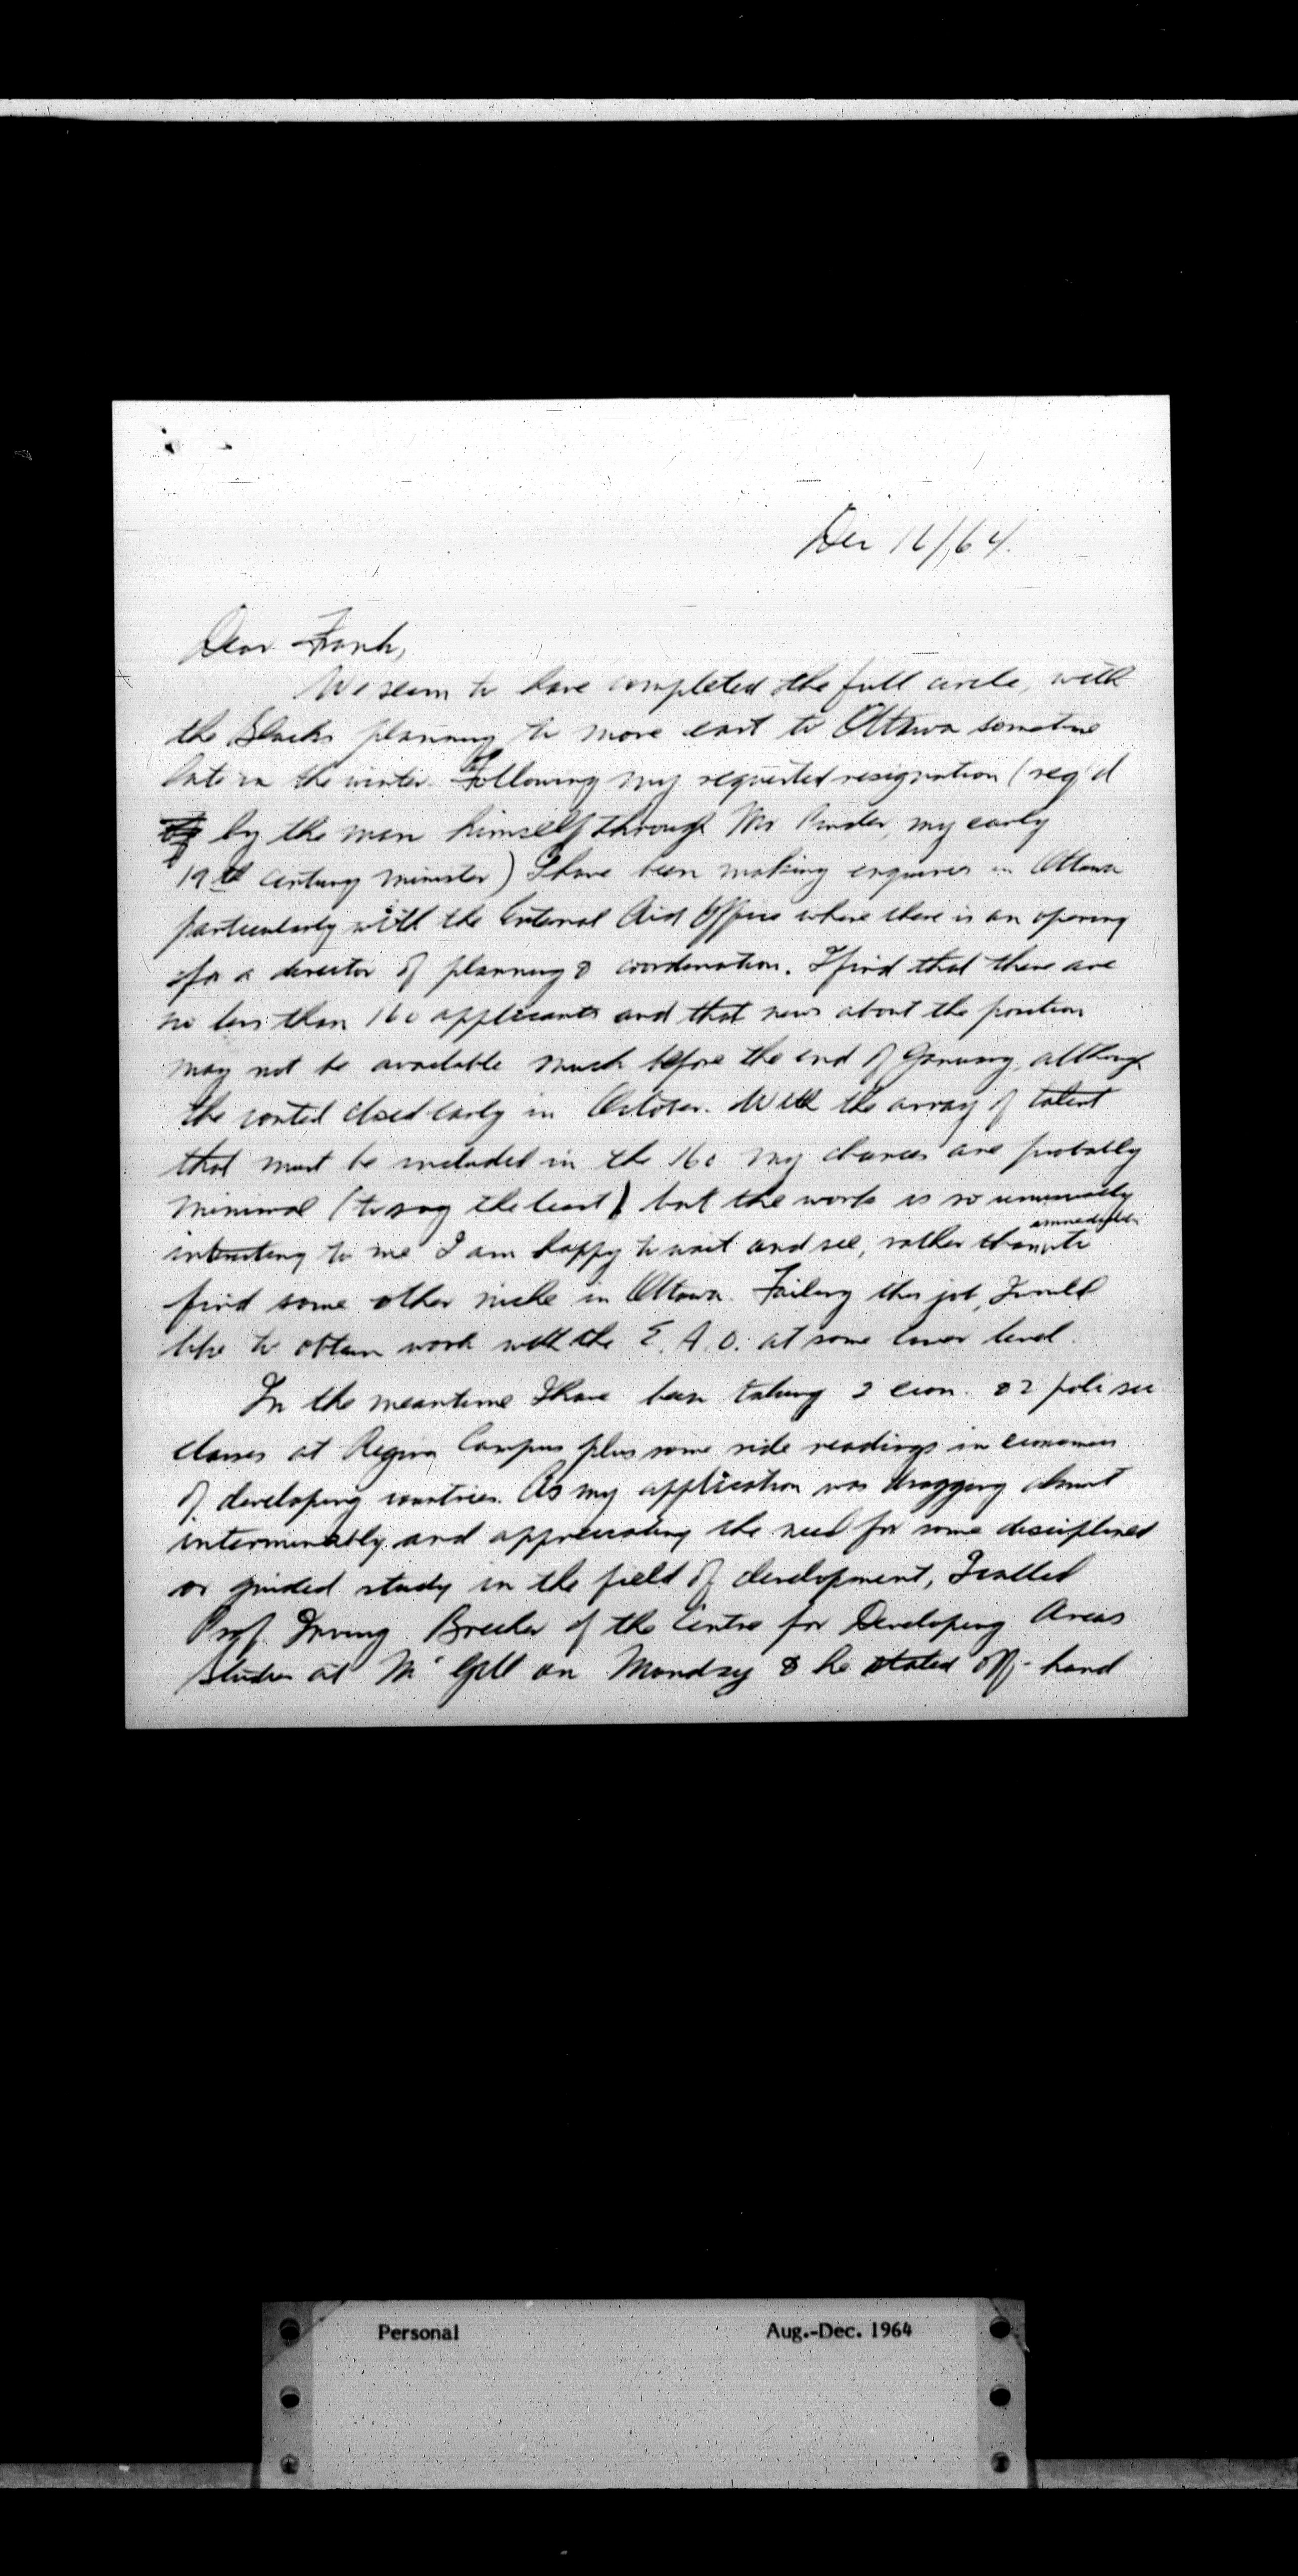 Dec 16/64.
Dear Frank,
We seem to have completed the full circle, with
the Blacks planning to move east to Ottawa sometime
late in the winter. Following my requested resignation (req'd
by the man himself through Mr Pinder, my early
19th century minister) I have been making enquiries in Ottawa
particularly with the External Aid Office where there is an opening
for a director of planning & coordination. I find that there are
no less than 160 applicants and that news about the position
may not be available much before the end of January, although
the contest closed early in October. With the array of talent
that must be included in the 160 my chances are probably
minimal (to say the least) but the work is so unusually
immediately
interesting to me I am happy to wait and see, rather than to
find some other niche in Ottawa. Failing this job, I would
like to obtain work with the E.A.O. at some lower level.
In the meantime I have been taking 2 econ. & 2 poli sci
classes at Regina Campus plus some side readings in economics
of developing countries. As my application was dragging almost
interminably and appreciating the need for some disciplined
or guided study in the field of development, I called
Prof. Irving Brecher of the Centre for Developing Areas
Studies at McGill on Monday & he stated off-hand
Personal Aug.-Dec. 1964